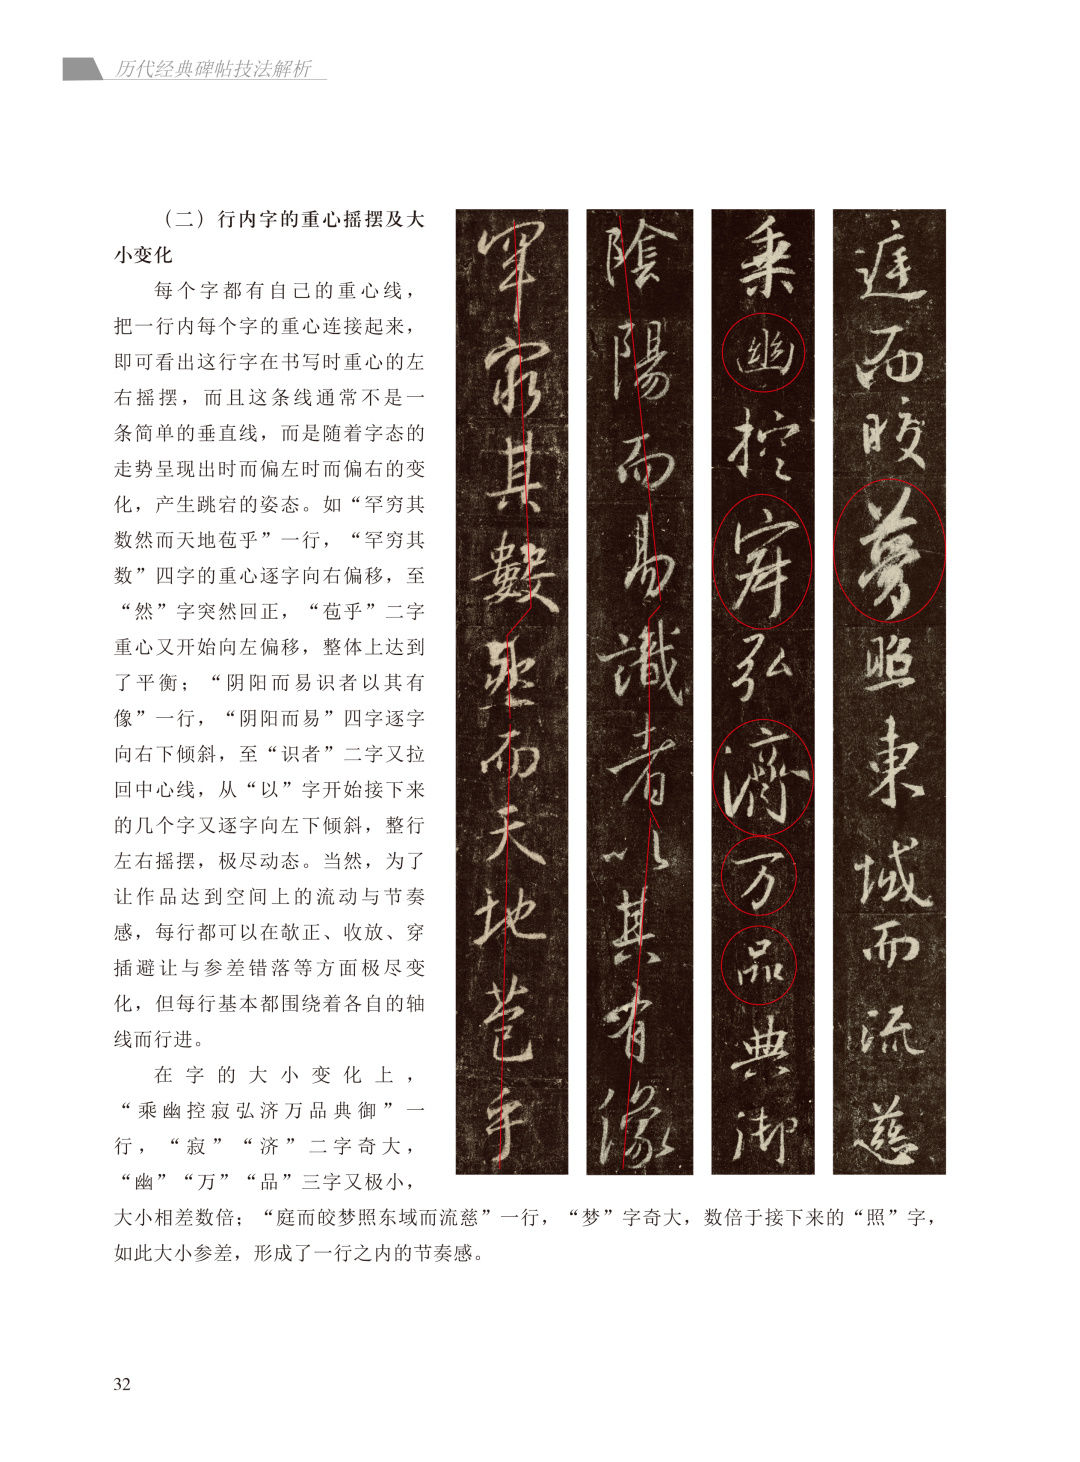 历代经典碑帖技法解析
（二）行内字的重心摇摆及大
小变化
每个字都有自己的重心线，
把一行内每个字的重心连接起来，
即可看出这行字在书写时重心的左
右摇摆，而且这条线通常不是一
条简单的垂直线，而是随着字态的
走势呈现出时而偏左时而偏右的变
化，产生跳宕的姿态。如“罕穷其
数然而天地苞乎”一行，“罕穷其
数”四字的重心逐字向右偏移，至
“然”字突然回正，“苞乎”二字
重心又开始向左偏移，整体上达到
了平衡；“阴阳而易识者以其有
像”一行，“阴阳而易”四字逐字
向右下倾斜，至“识者”二字又拉
回中心线，从“以”字开始接下来
的几个字又逐字向左下倾斜，整行
左右摇摆，极尽动态。当然，为了
让作品达到空间上的流动与节奏
感，每行都可以在欹正、收放、穿
插避让与参差错落等方面极尽变
化，但每行基本都围绕着各自的轴
线而行进。
在字的大小变化上，
“乘幽控寂弘济万品典御”一
行，“寂”“济”二字奇大，
“幽”“万”“品”三字又极小，
大小相差数倍；“庭而皎梦照东域而流慈”一行，“梦”字奇大，数倍于接下来的“照”字，
如此大小参差，形成了一行之内的节奏感。
罕窮其數然而天地苞乎
陰陽而易識者以其有像
乘幽控寂弘濟万品典御
庭而皎夢照東域而流慈
32